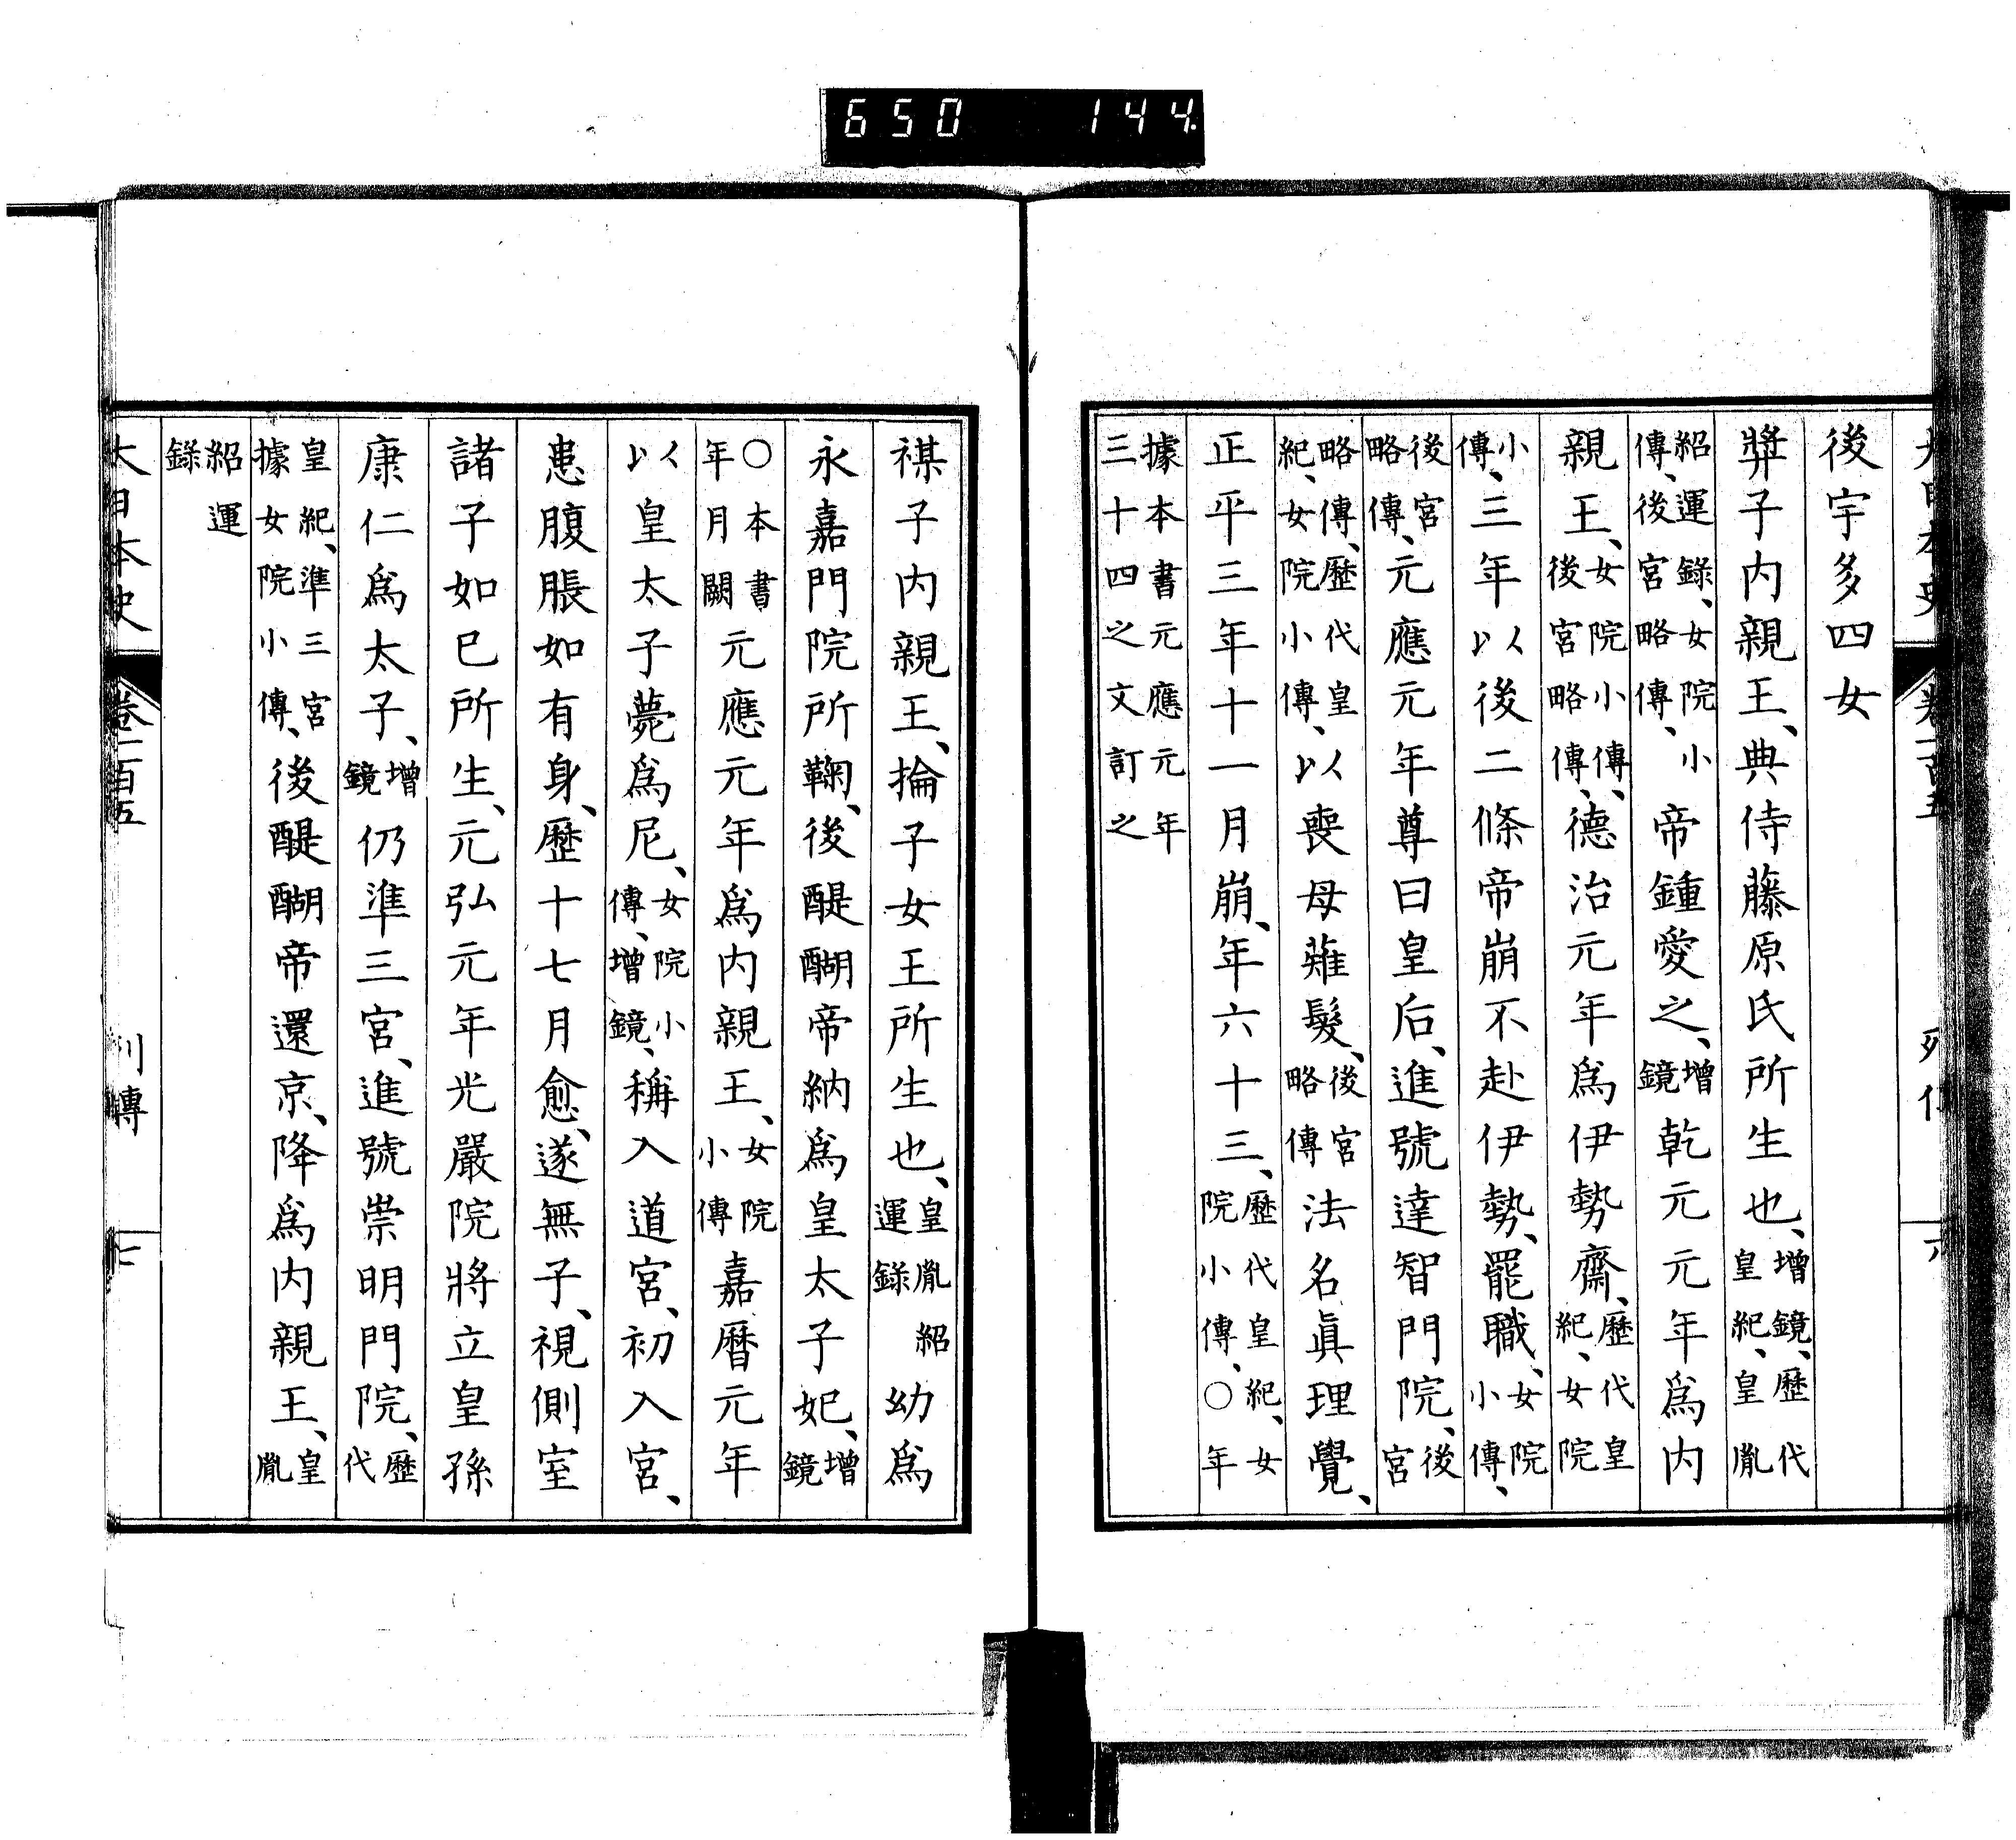 650 144.
大日本史 卷一百五 列傳 六
後宇多四女
弉子内親王、典侍藤原氏所生也、增鏡、歷代皇紀、皇胤
紹運錄、女院小傳、後宮略傳、帝鍾愛之、增鏡乾元元年爲内
親王、女院小傳、後宮略傳、德治元年爲伊勢齋、歷代皇紀、女院
小傳、三年以後二條帝崩不赴伊勢、罷職、女院小傳、
後宮略傳、元應元年尊曰皇后、進號達智門院、後宮
略傳、歷代皇紀、女院小傳、以喪母薙髮、後宮略傳法名眞理覺、
正平三年十一月崩、年六十三、歷代皇紀、女院小傳、○年
據本書元應元年三十四之文訂之
禖子内親王、掄子女王所生也、皇胤紹運錄幼爲
永嘉門院所鞠、後醍醐帝納爲皇太子妃、增鏡
○本書年月闕元應元年爲内親王、女院小傳嘉曆元年
以皇太子薨爲尼、女院小傳、增鏡、稱入道宮、初入宮、
患腹脹如有身、歷十七月愈、遂無子、視側室
諸子如已所生、元弘元年光嚴院將立皇孫
康仁爲太子、增鏡仍準三宮、進號崇明門院、歷代
皇紀、準三宮據女院小傳、後醍醐帝還京、降爲内親王、皇胤
紹運錄
大日本史 卷一百五 列傳 七